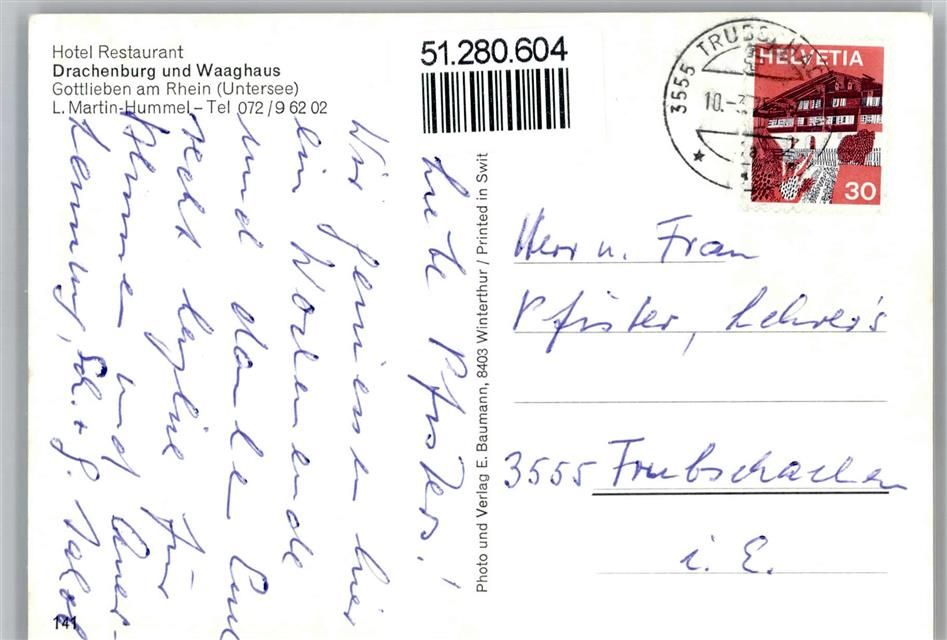 Hotel Restaurant
Drachenburg und Waaghaus
Gottlieben am Rhein (Untersee)
L. Martin-Hummel – Tel 072 / 9 62 02
51.280.604
3555 TRUBSCHACHEN
10.-3
HELVETIA
30
Liebe Pfisters!
Wir geniessen hier
ein Wochenende
und danken Euch
recht herzlich für
Blumen und Aner-
kennung,
Photo und Verlag E. Baumann, 8403 Winterthur / Printed in Swit
Herr u. Frau
Pfister, Lehrer's
3555 Trubschachen
i. E.
141